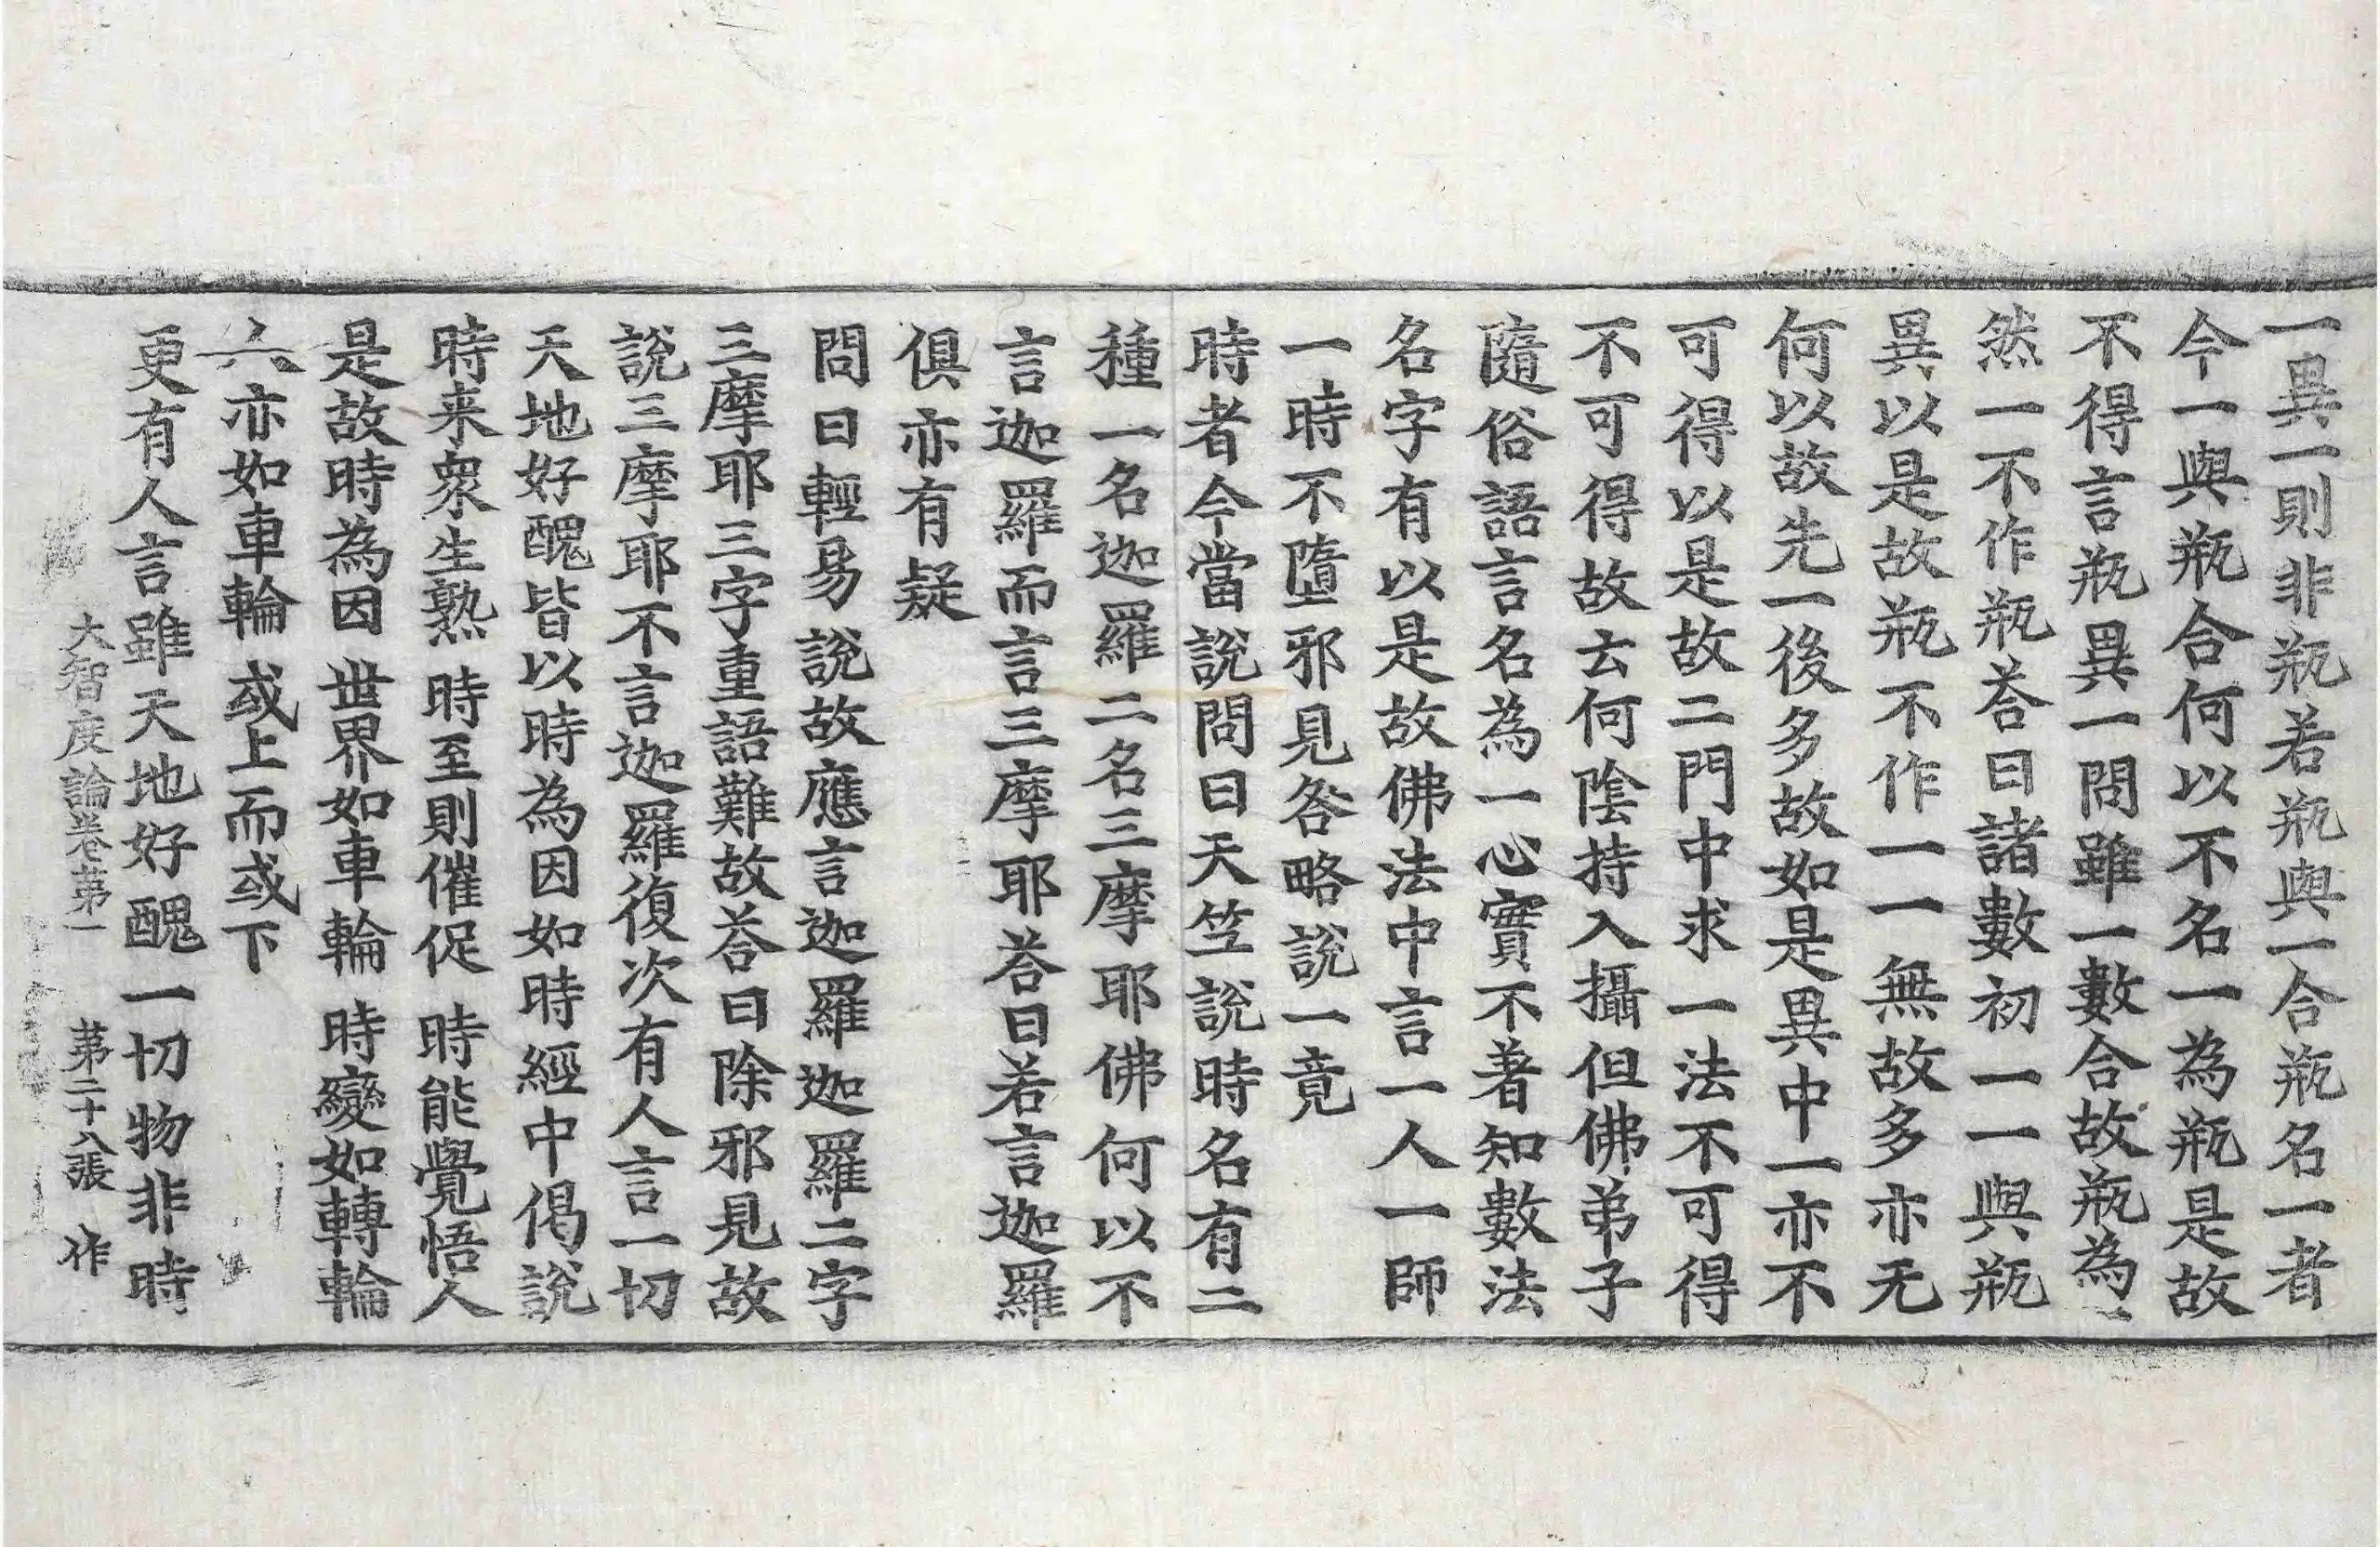 一異一則非瓶若瓶與一合瓶名一者
今一與瓶合何以不名一為瓶是故
不得言瓶異一問雖一數合故瓶為一
然一不作瓶荅曰諸數初一一與瓶
異以是故瓶不作一一無故多亦无
何以故先一後多故如是異中一亦不
可得以是故二門中求一法不可得
不可得故云何陰持入攝但佛弟子
隨俗語言名為一心實不著知數法
名字有以是故佛法中言一人一師
一時不墮邪見咎略說一竟
時者今當說問曰天竺說時名有二
種一名迦羅二名三摩耶佛何以不
言迦羅而言三摩耶荅曰若言迦羅
俱亦有疑
問曰輕易說故應言迦羅迦羅二字
三摩耶三字重語難故荅曰除邪見故
說三摩耶不言迦羅復次有人言一切
天地好醜皆以時為因如時經中偈說
時来衆生熟 時至則催促 時能覺悟人
是故時為因 世界如車輪 時變如轉輪
人亦如車輪 或上而或下
更有人言雖天地好醜一切物非時
大智度論卷第一 第二十八張 作